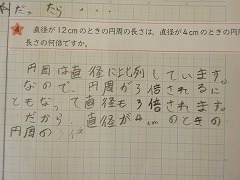 だったら・・・
4 直径が12cmのときの円周の長さは、直径が4cmのときの円周
長さの何倍ですか。
円周は直径に比例しています。
なので、円周が3倍されるに
ともなって直径も3倍されます。
だから、直径が4cmのときの
円周の